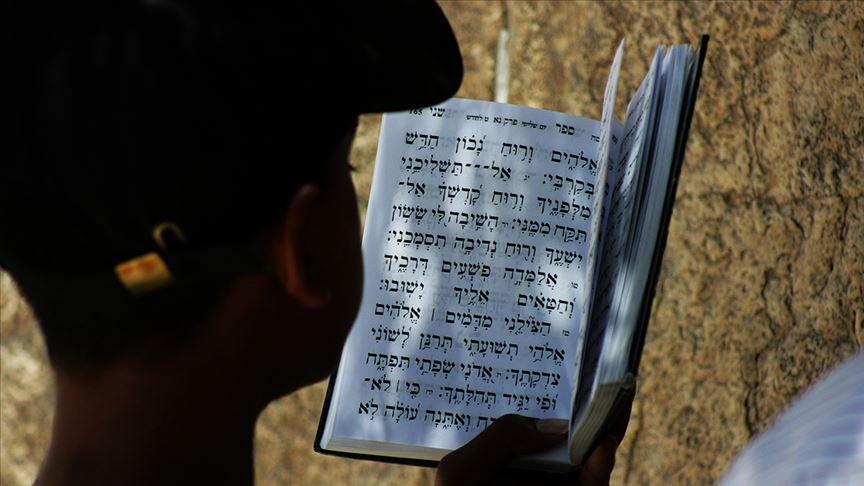 ספר יום שלישי פרק נא ט לחדש שני 165
אֱלֹהִים וְרוּחַ נָכוֹן חַדֵּשׁ
בְּקִרְבִּי: יג אַל־־־תַּשְׁלִיכֵנִי
מִלְּפָנֶיךָ וְרוּחַ קָדְשְׁךָ אַל־
תִּקַּח מִמֶּנִּי: יד הָשִׁיבָה לִּי שְׂשׂוֹן
יִשְׁעֶךָ וְרוּחַ נְדִיבָה תִסְמְכֵנִי:
טו אֲלַמְּדָה פֹשְׁעִים דְּרָכֶיךָ
וְחַטָּאִים אֵלֶיךָ יָשׁוּבוּ:
טז הַצִּילֵנִי מִדָּמִים | אֱלֹהִים
אֱלֹהֵי תְּשׁוּעָתִי תְּרַנֵּן לְשׁוֹנִי
צִדְקָתֶךָ: יז אֲדֹנָי שְׂפָתַי תִּפְתָּח
וּפִי יַגִּיד תְּהִלָּתֶךָ: יח כִּי | לֹא־
וְאֶתֵּנָה עוֹלָה לֹא